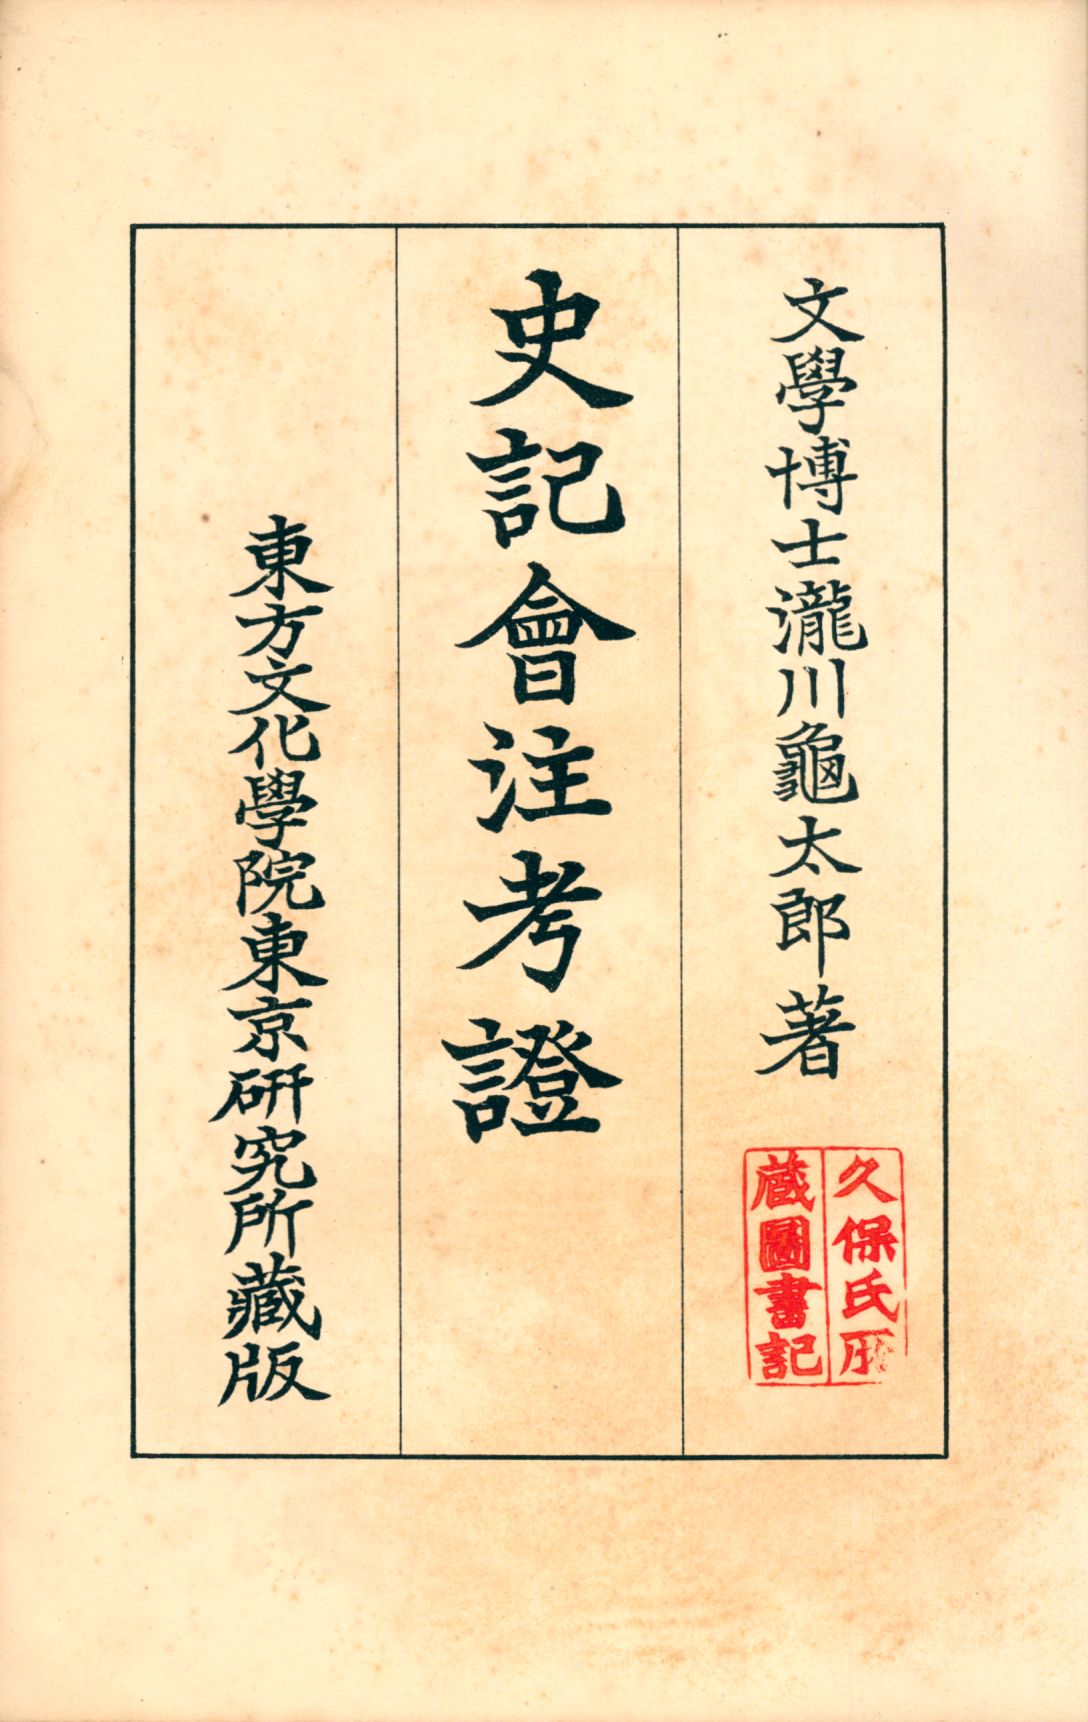 文學博士瀧川龜太郎著
史記會注考證
東方文化學院東京研究所藏版
久保氏所
蔵圖書記